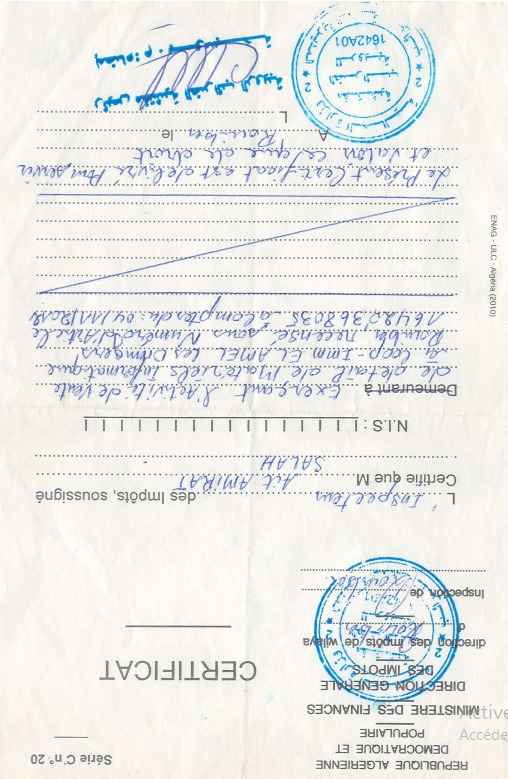 REPUBLIQUE ALGERIENNE
DEMOCRATIQUE ET
POPULAIRE
MINISTERE DES FINANCES
DIRECTION GENERALE
DES IMPOTS
direction des Impôts de wilaya
d
Inspection de Rouiba
Série C n° 20
CERTIFICAT
L'Inspecteur des Impôts, soussigné
Certifie que M Ait AMIRAT
SALAH
N.I.S :
Demeurant à Exerçant l'Activité de Vente
de detail de Matériels Informatique
à Coop-Imm EL AMEL Les Orangers
Rouiba recensé sous Numéro d'Article
16420368035 à Compter du: 04/11/2012
ENAG - ULC - Algéria (2010)
Le Présent Certificat est delivré Pour servir
et valoir ce que de droit
A Rouiba le
L
وزارة المالية
مفتشية
الضرائب
للرويبة
1642A01
رئيس مفتشية الضرائب الرويبة
إمضاء: م.